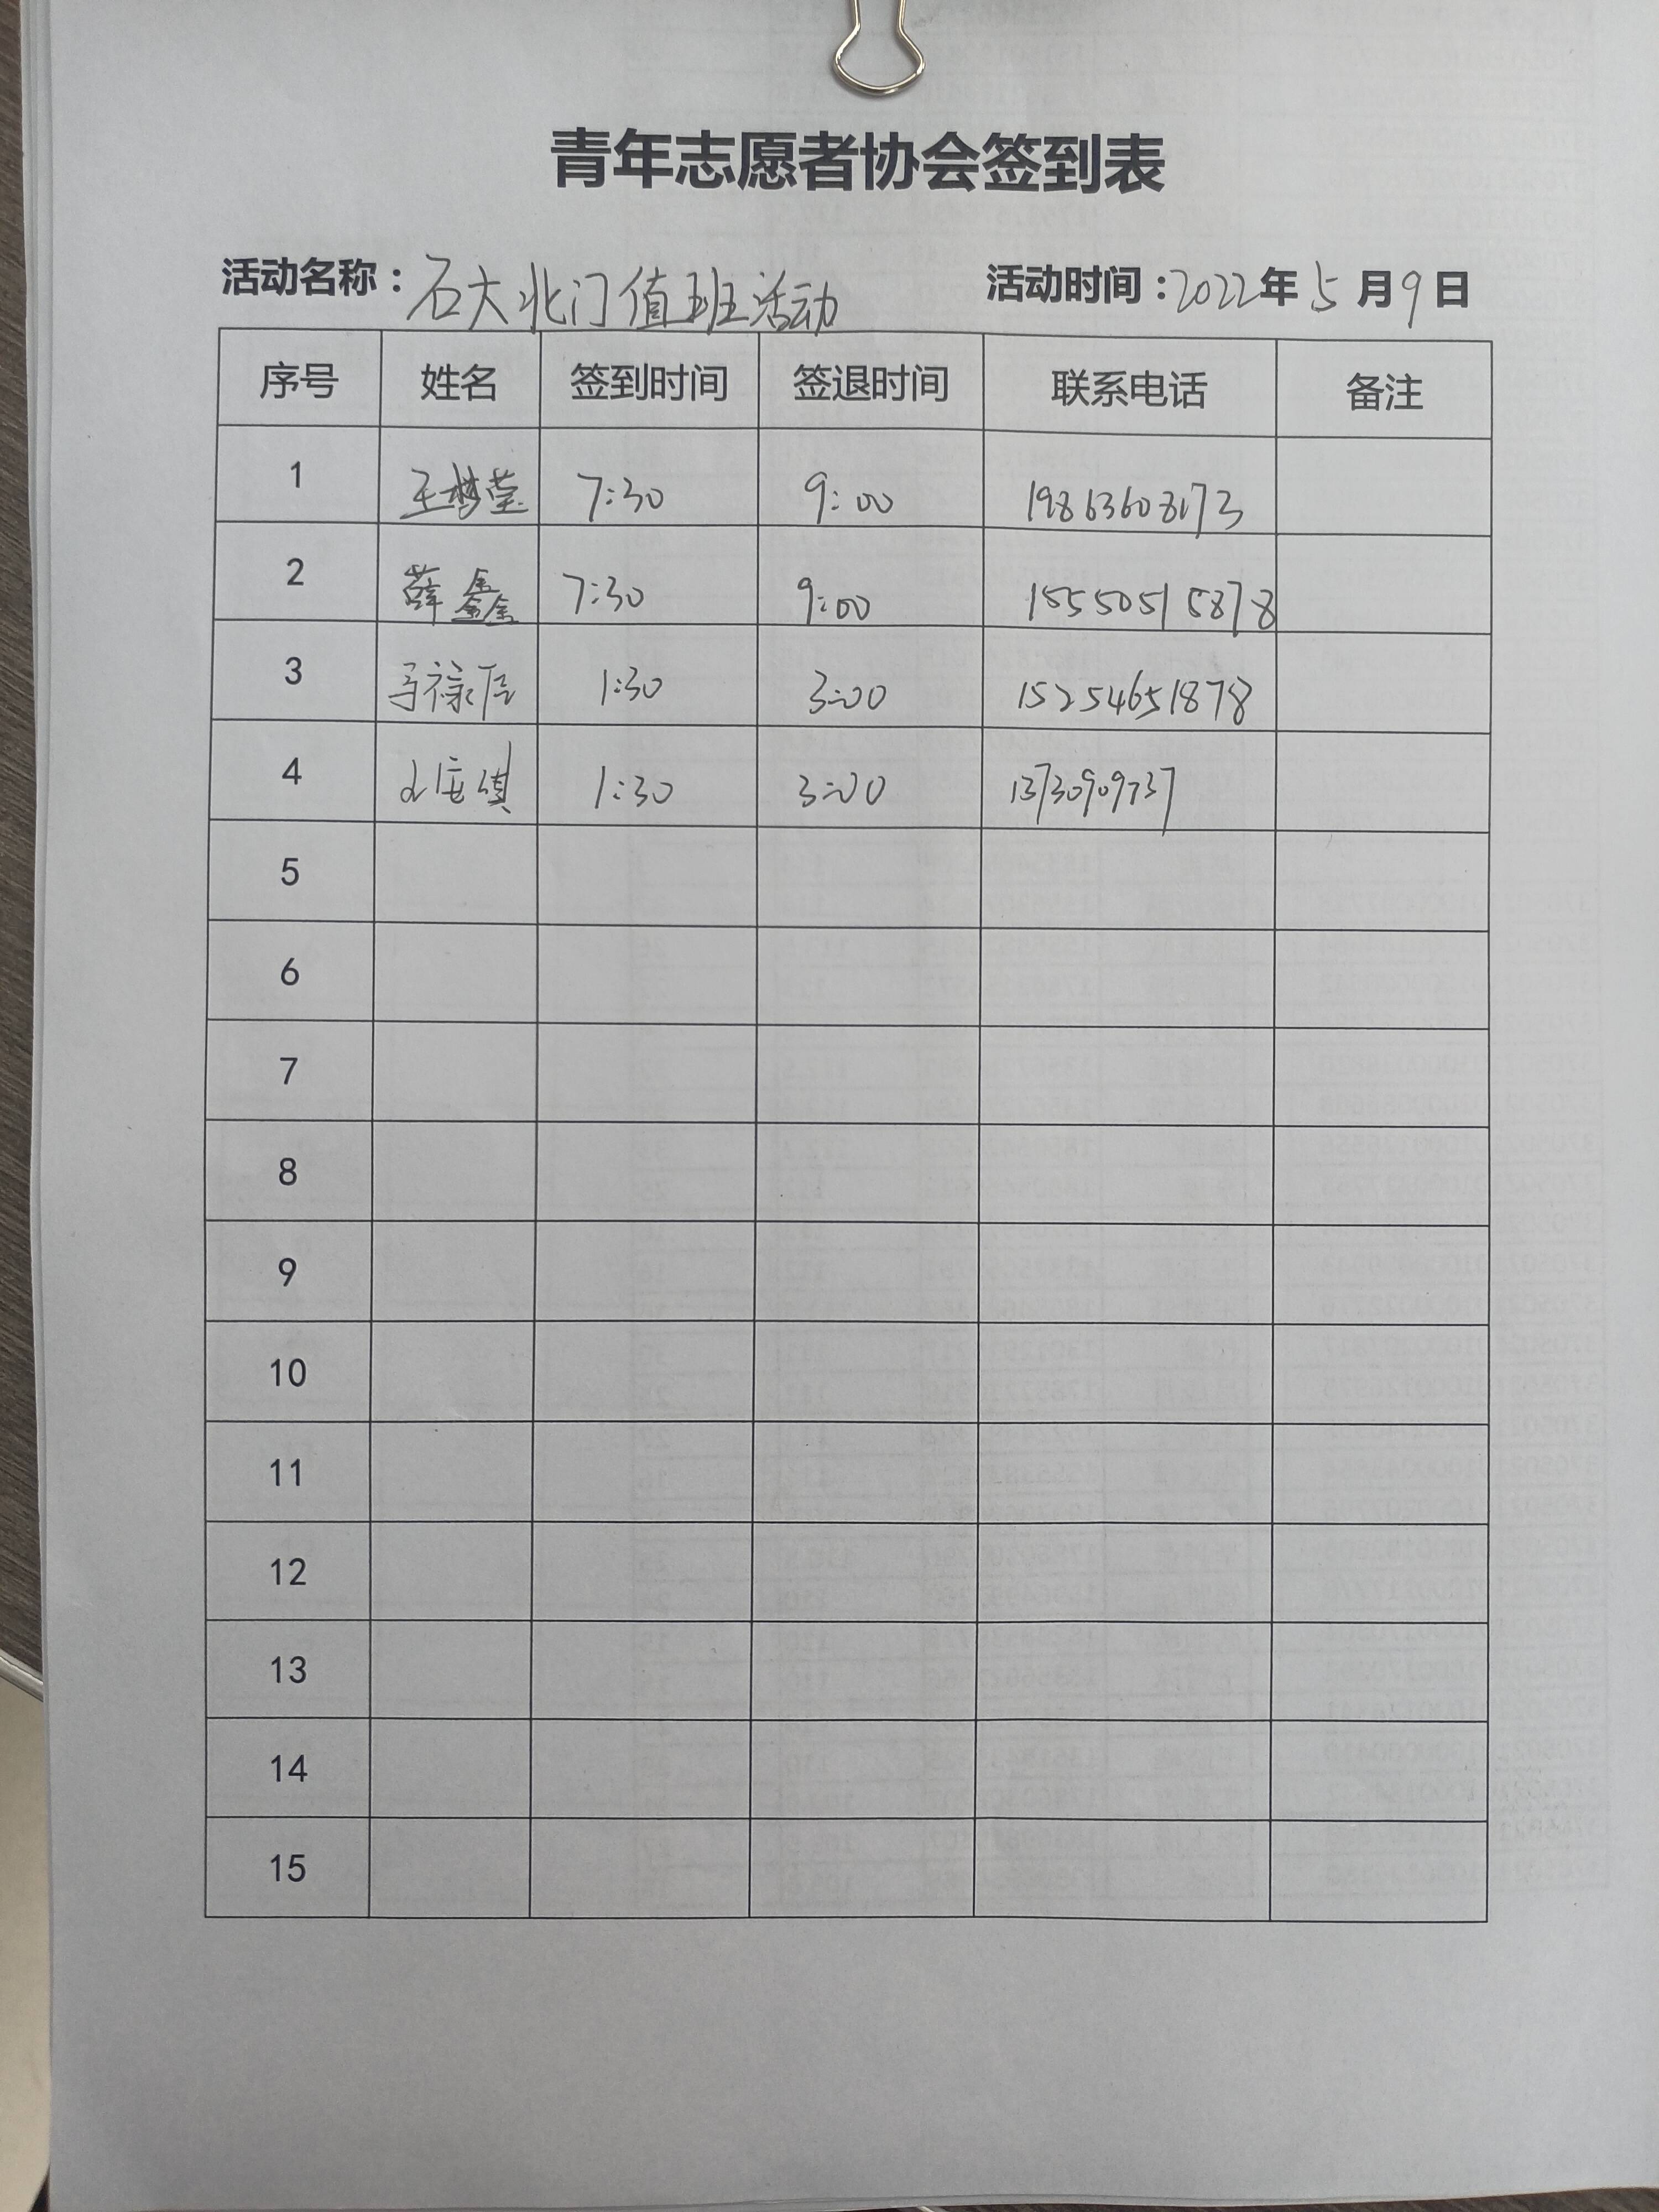 青年志愿者协会签到表
活动名称：石大北门值班活动 活动时间：2022年5月9日
序号 姓名 签到时间 签退时间 联系电话 备注
1 王梦莹 7:30 9:00 19863608173
2 薛鑫 7:30 9:00 15550515878
3 1:30 3:00 15254651878
4 1:30 3:00 13730909737
5
6
7
8
9
10
11
12
13
14
15